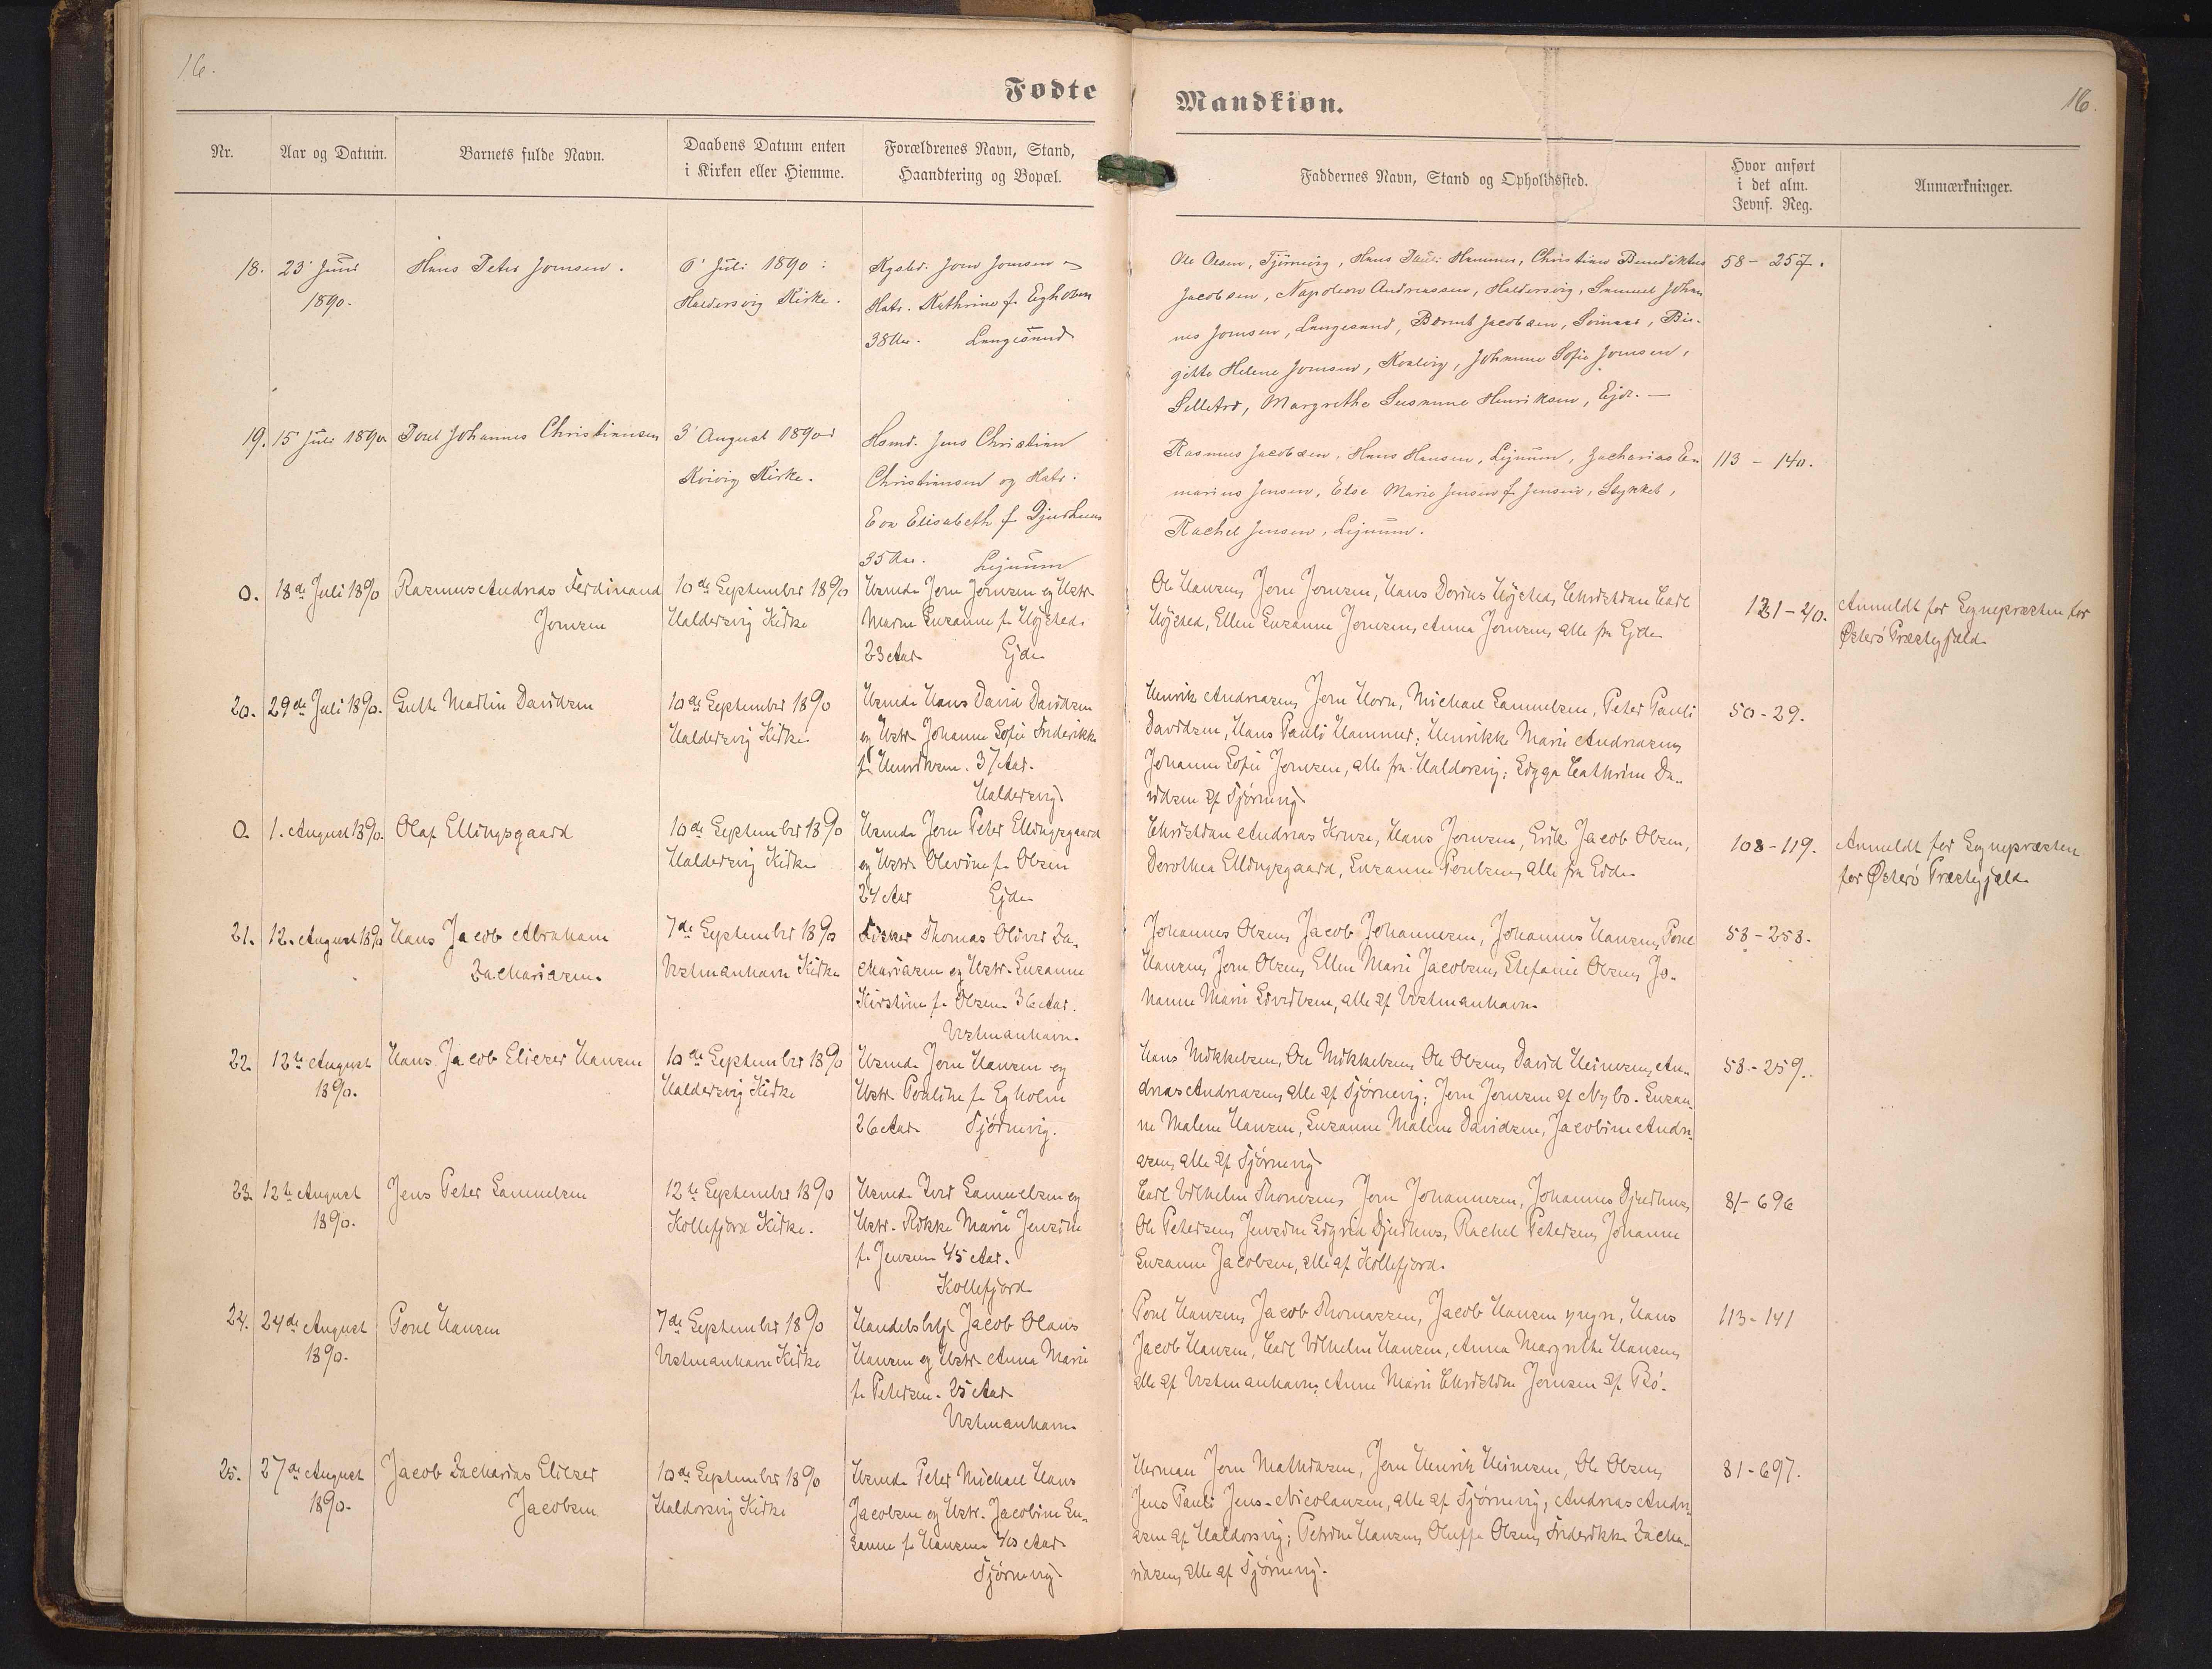 16.
Fødte
Mandkiøn.
16.
Nr.
Aar og Datum.
Barnets fulde Navn.
Daabens Datum enten
i Kirken eller Hiemme.
Forældrenes Navn, Stand,
Haandtering og Bopæl.
Faddernes Navn, Stand og Opholdssted.
Hvor anført
i det alm.
Jevnf. Reg.
Anmærkninger.
18.
23' Juni
1890.
Hans Peter Joensen.
6' Juli 1890:
Haldersvig Kirke.
Joen Joensen
Hstr. Kathrine f. Egholm
38 Aar. Langesand
Ole Olsen, Tjörnevig, Hans Pauli Hammer, Christian Benediktus
Jacobsen, Napoleon Andreassen, Haldersvig, Samuel Johan
nes Joensen, Langesand, Berent Jacobsen, Bir-
gitte Helene Joensen, Kvalvig, Johanne Sofie Joensen,
Selletræ, Margrethe Susanne Henriksen, Ejde. —
58 - 257.
19.
15' Juli 1890
Poul Johannes Christiansen
3' August 1890
Kvivig Kirke.
Hsmd. Jens Christian
Christiansen og Hstr:
Eva Elisabeth f. Djurhuus
35 Aar. Lejnum
Rasmus Jacobsen, Hans Hansen, Lejnum, Zacharias En-
marius Jensen, Else Marie Jensen f. Jensen, Stykket,
Rachel Jensen, Lejnum.
113 - 140.
0.
18de Juli 1890
Rasmus Andreas Ferdinand
Joensen
10de September 1890
Haldersvig Kirke
Hsmd. Joen Joensen og Hstr.
Maren Susanne f. Højsted.
23 Aar Ejde
Ole Hansen, Joen Joensen, Hans Dorius Højsted, Christian Carl
Højsted, Ellen Susanne Joensen, Anna Joensen, alle fra Ejde
121-40.
Anmeldt for Sognepræsten for
Østerø Præstegjeld
20.
29de Juli 1890.
Gutte Martin Davidsen
10de September 1890
Haldersvig Kirke.
Hsmd. Hans David Davidsen
og Hstr. Johanne Sofie Frederikke
f. Henriksen. 37 Aar.
Haldersvig
Henrik Andreasen, Joen Horn, Michael Samuelsen, Peter Pauli
Davidsen, Hans Pauli Hammer; Henrikke Marie Andreasen,
Johanne Sofie Joensen, alle fra Haldorsvig; Sigga Cathrine Da-
vidsen af Tjörnevig
50-29.
0.
1. August 1890.
Olaf Ellingsgaard
10de September 1890
Haldersvig Kirke
Hsmd. Joen Peter Ellingsgaard
og Hstr. Olevine f. Olsen
24 Aar Ejde
Christian Andreas Kruse, Hans Joensen, Erik Jacob Olsen,
Dorothea Ellingsgaard, Susanne Poulsen, alle fra Eide
108-119.
Anmeldt for Sognepræsten
for Østerø Præstegjeld
21.
12. August 1890
Hans Jacob Abraham
Zachariasen.
7de September 1890
Vestmanhavn Kirke
Fisker Thomas Oliver Za-
chariasen og Hstr. Susanne
Kirstine f. Olsen 36 Aar.
Vestmanhavn.
Johannes Olsen, Jacob Johannesen, Johannes Hansen, Poul
Hansen, Joen Olsen, Ellen Marie Jacobsen, Stefanie Olsen, Jo-
hanne Marie Sivertsen, alle af Vestmanhavn.
58-258.
22.
12te August
1890.
Hans Jacob Elieser Hansen
10de September 1890
Haldersvig Kirke
Hsmd. Joen Hansen og
Hstr. Pouline f. Egholm
26 Aar Tjörnevig.
Hans Mikkelsen, Ole Mikkelsen, Ole Olsen, David Heinesen, An-
dreas Andreasen, alle af Tjörnevig; Joen Joensen af Nybo. Susan-
ne Malene Hansen, Susanne Malene Davidsen, Jacobine Andre-
asen, alle af Tjörnevig
58-259.
23.
12te August
1890.
Jens Peter Samuelsen
12te September 1890
Kollefjord Kirke.
Hsmd. Samuelsen og
Hstr. Rikke Marie Jensine
f. Jensen 45 Aar.
Kollefjord
Carl Vilhelm Thomsen, Joen Johannesen, Johannes Djurhuus,
Ole Petersen, Jensine Sigrid Djurhuus, Rachel Petersen, Johanne
Susanne Jacobsen, alle af Kollefjord.
81-696
24.
24de August
1890.
Poul Hansen
7de September 1890
Vestmanhavn Kirke
Handelsbetj. Jacob Olaus
Hansen og Hstr. Anna Marie
f. Petersen. 25 Aar
Vestmanhavn
Poul Hansen, Jacob Thomassen, Jacob Hansen yngre, Hans
Jacob Hansen, Carl Vilhelm Hansen, Anna Margrethe Hansen,
alle af Vestmanhavn, Anne Marie Christine Joensen af
113-141
25.
27de August
1890.
Jacob Zacharias Elieser
Jacobsen
10de September 1890
Haldorsvig Kirke
Hsmd. Peter Michael Hans
Jacobsen og Hstr. Jacobine Su-
sanne f. Hansen 40 Aar
Tjörnevig
Herman Joen Mathiasen, Joen Henrik Heinesen, Ole Olsen,
Jens Pauli Jens-Nicolausen, alle af Tjörnevig; Andreas Andre-
asen af Haldorsvig; Petrine Hansen, Oluffa Olsen, Frederikke Zacha-
riasen, alle af Tjörnevig.
81-697.